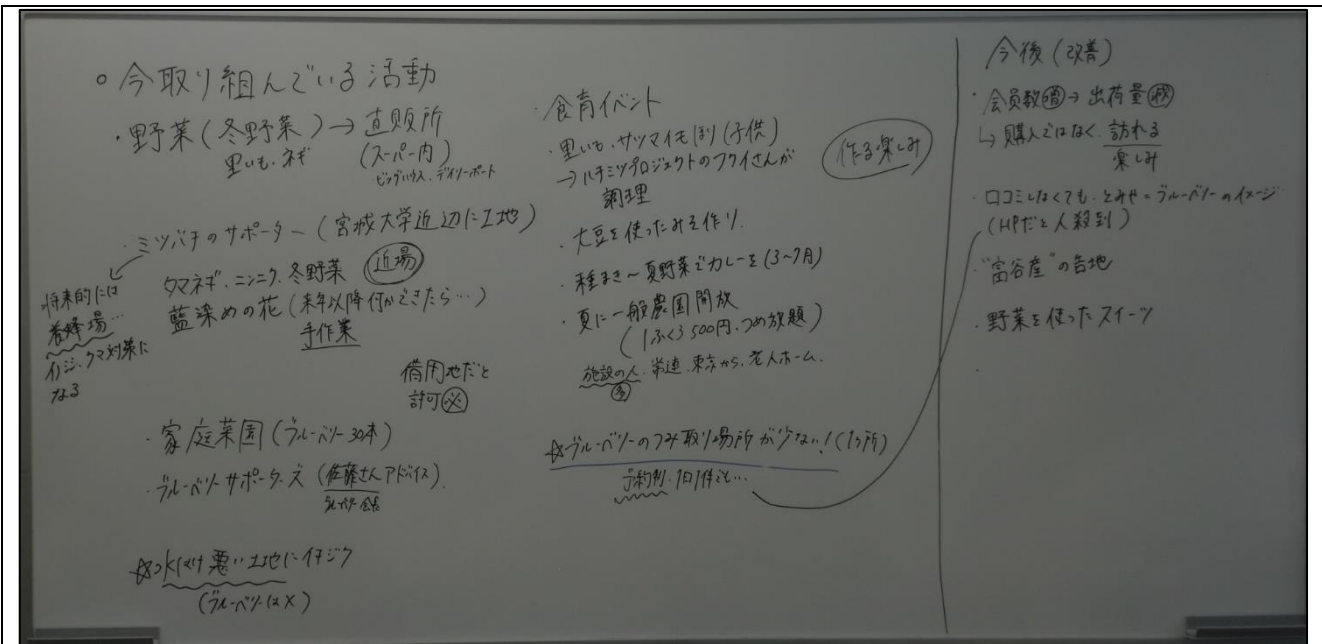 ○今取り組んでいる活動
・野菜(冬野菜)→直販所
里いも、ネギ
(スーパー内)
ビッグハウス、デイリーポート
・ミツバチのサポーター(宮城大学近辺に土地)
タマネギ、ニンニク、冬野菜 近場
藍染めの花(来年以降何かできたら…)
手作業
将来的には
養蜂場…
クマ対策に
なる
借用地だと
許可必
・家庭菜園(ブルーベリー30本)
・ブルーベリーサポーターズ(佐藤さんアドバイス)
☆水はけ悪い土地にイチジク
(ブルーベリーは×)
・食育イベント
・里いも、サツマイモほり(子供)
→ハチミツプロジェクトのフクイさんが
調理
作る楽しみ
・大豆を使ったみそ作り
・種まき〜夏野菜でカレーを(3〜7月)
・夏に一般農園開放
(1ふくろ500円、つめ放題)
施設の人、常連、東京から、老人ホーム
多
☆ブルーベリーのつみ取り場所が少ない!(1ヶ所)
予約制、1日1件とか…
今後(改善)
・会員数増→出荷量減
↳購入ではなく、訪れる
楽しみ
・口コミしなくても、とみや=ブルーベリーのイメージ
(HPだと人殺到)
・"富谷産"の告知
・野菜を使ったスイーツ